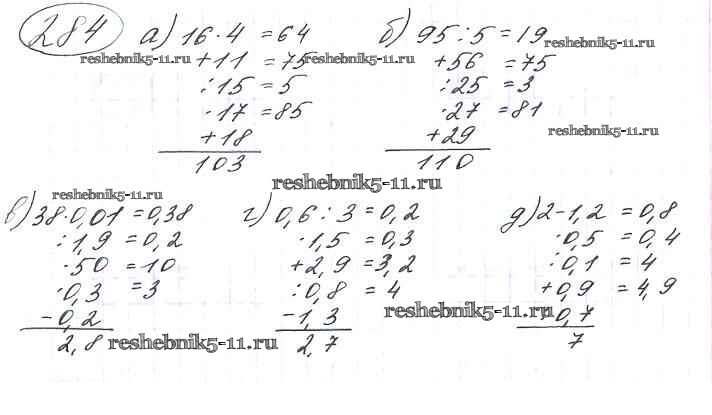 284 а) 16·4 =64 б) 95:5=19
reshebnik5-11.ru +11 =75 +56 =75 reshebnik5-11.ru
reshebnik5-11.ru
:15 =5 :25 =3
·17 =85 ·27 =81
+18 +29 reshebnik5-11.ru
103 110
reshebnik5-11.ru
reshebnik5-11.ru
в) 38·0,01=0,38 г) 0,6:3=0,2 д) 2-1,2 =0,8
:1,9 =0,2 ·1,5 =0,3 ·0,5 =0,4
·50 =10 +2,9 =3,2 :0,1 =4
·0,3 =3 :0,8 =4 +0,9 =4,9
-0,2 -1,3 reshebnik5-11.ru :0,7
2,8 reshebnik5-11.ru 2,7 7